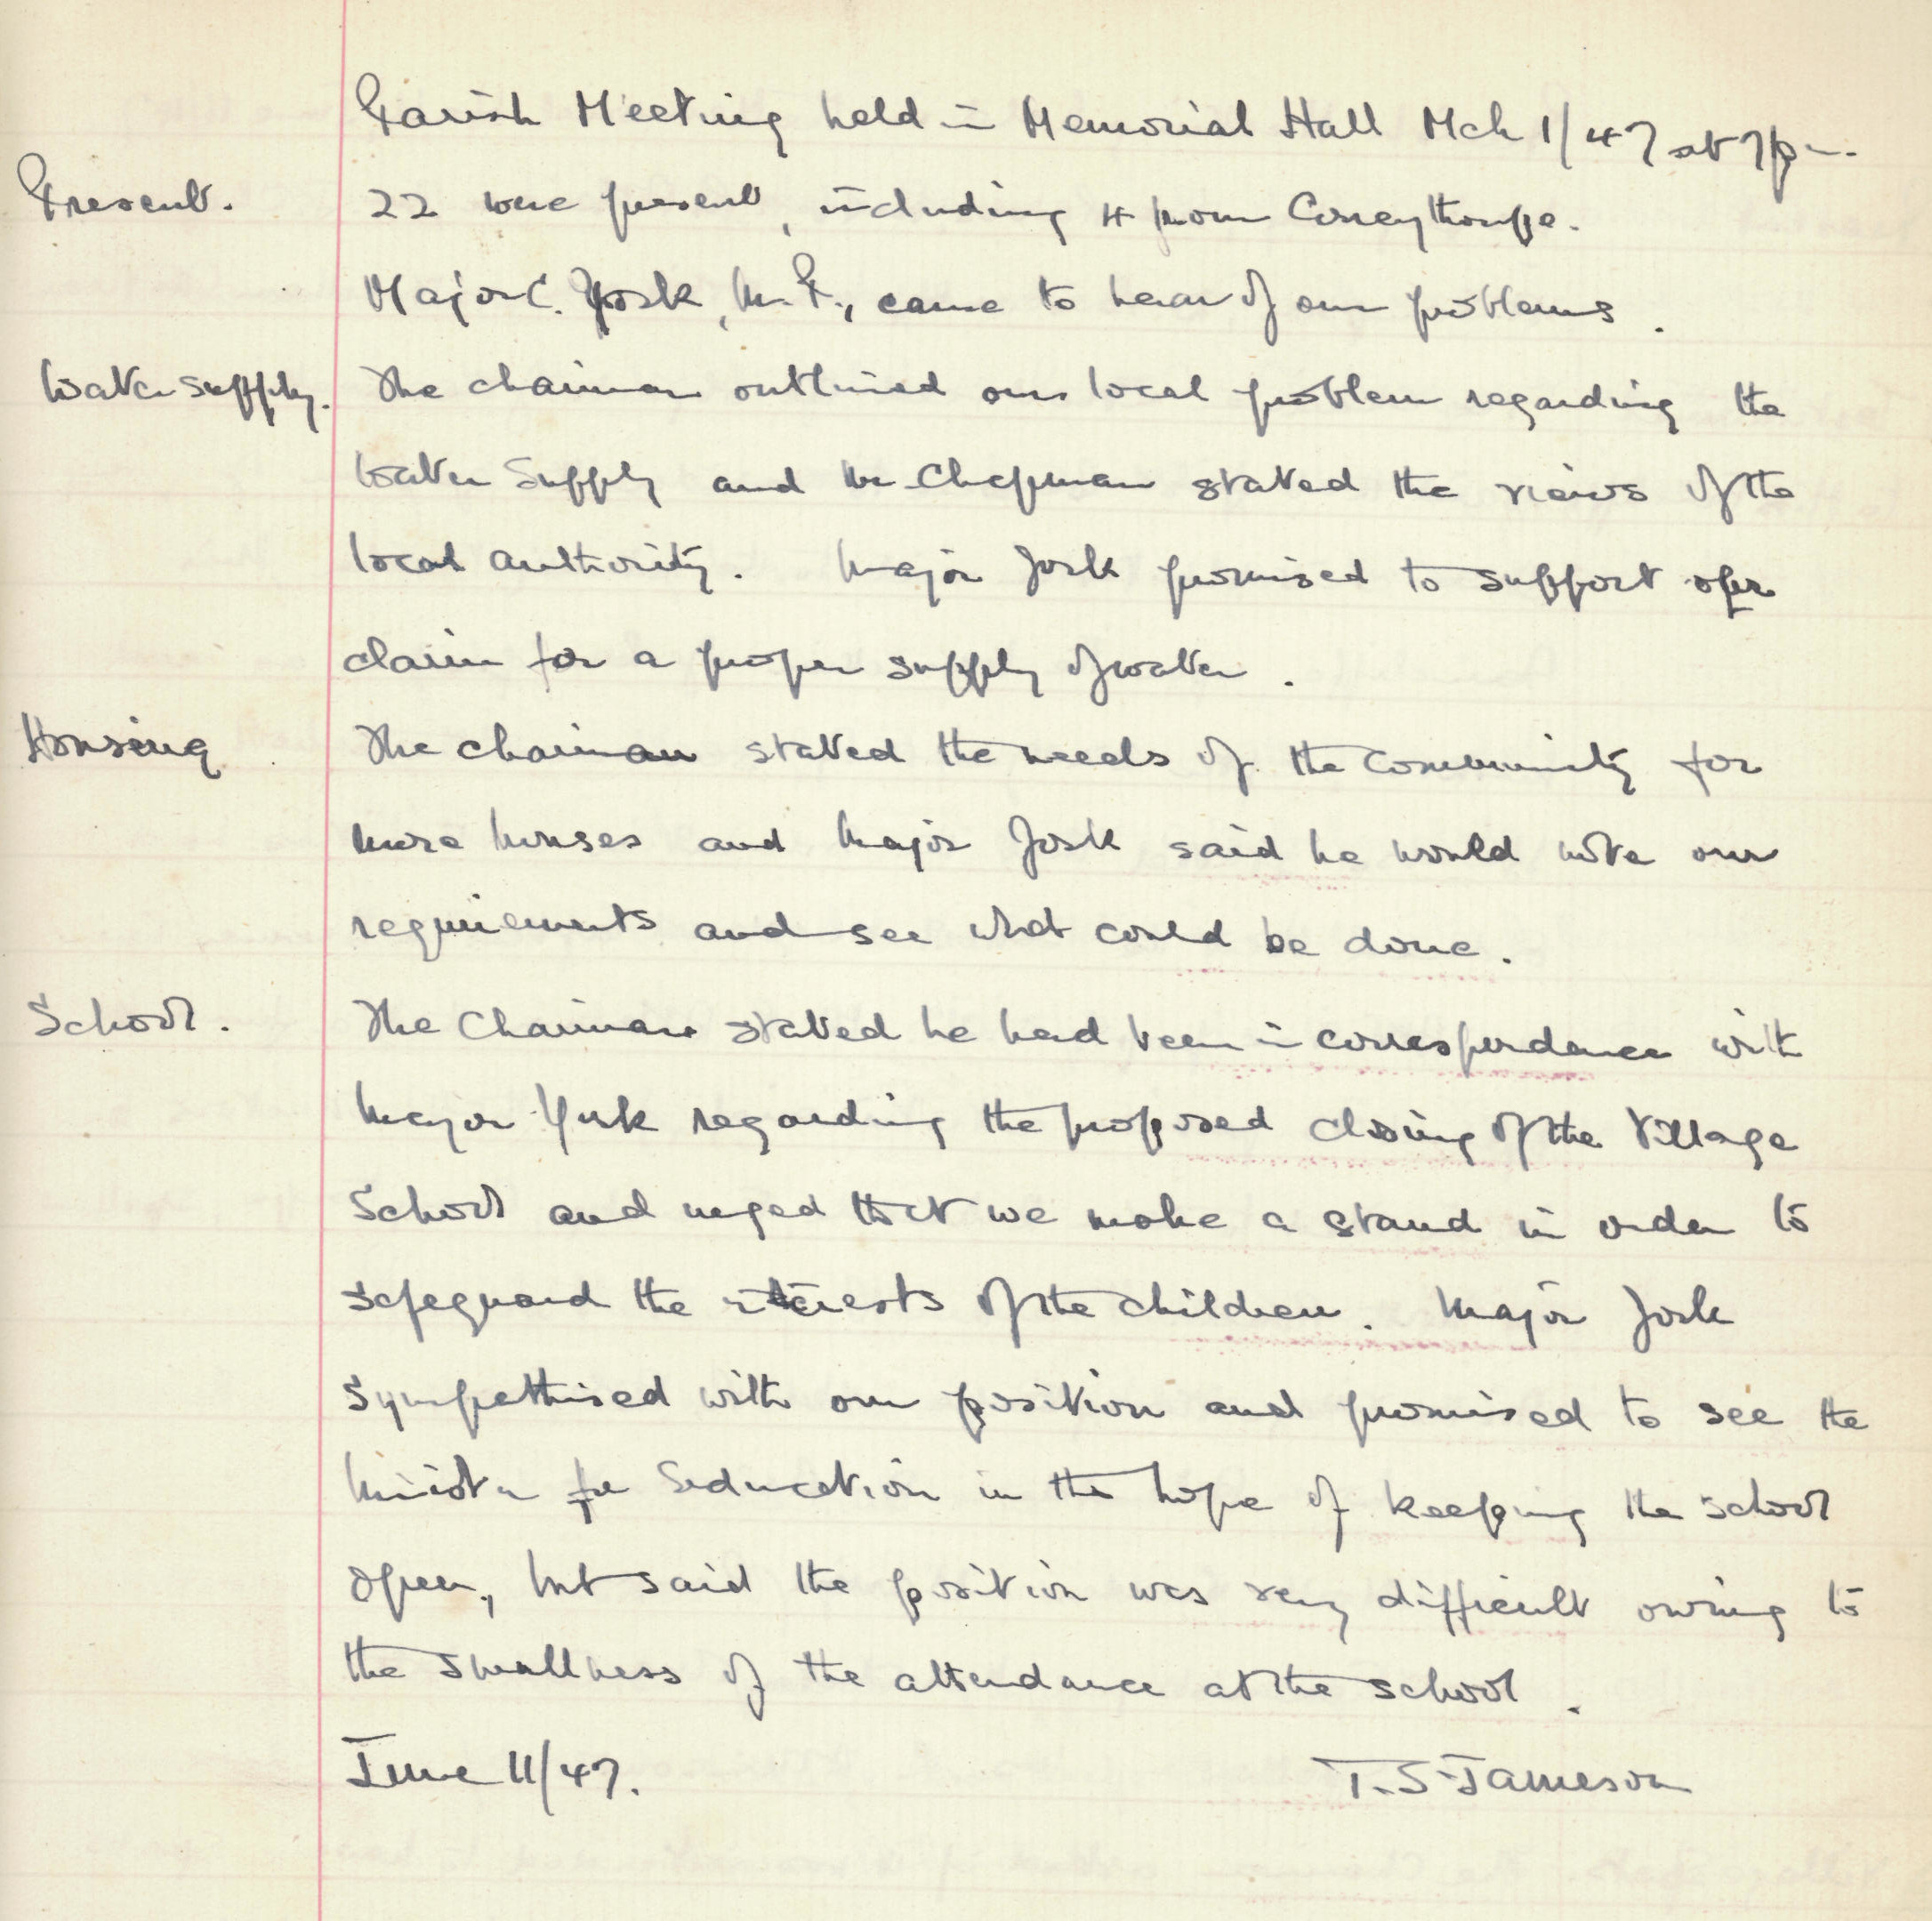 Parish Meeting held in Memorial Hall Mch 1/47 at 7pm.
Present. 22 were present, including 4 from Coneythorpe.
Major C. York, M.P., came to hear of our problems.
Water supply. The chairman outlined our local problem regarding the
Water Supply and Mr Chapman stated the views of the
local authority. Major York promised to support our
claim for a proper supply of water.
Housing The chairman stated the needs of the community for
more houses and Major York said he would note our
requirements and see what could be done.
School. The Chairman stated he had been in correspondence with
Major York regarding the proposed closing of the Village
School and urged that we make a stand in order to
safeguard the interests of the children. Major York
sympathised with our position and promised to see the
Minister for Education in the hope of keeping the school
open, but said the position was very difficult owing to
the smallness of the attendance at the school.
June 11/47. T. S. Jameson